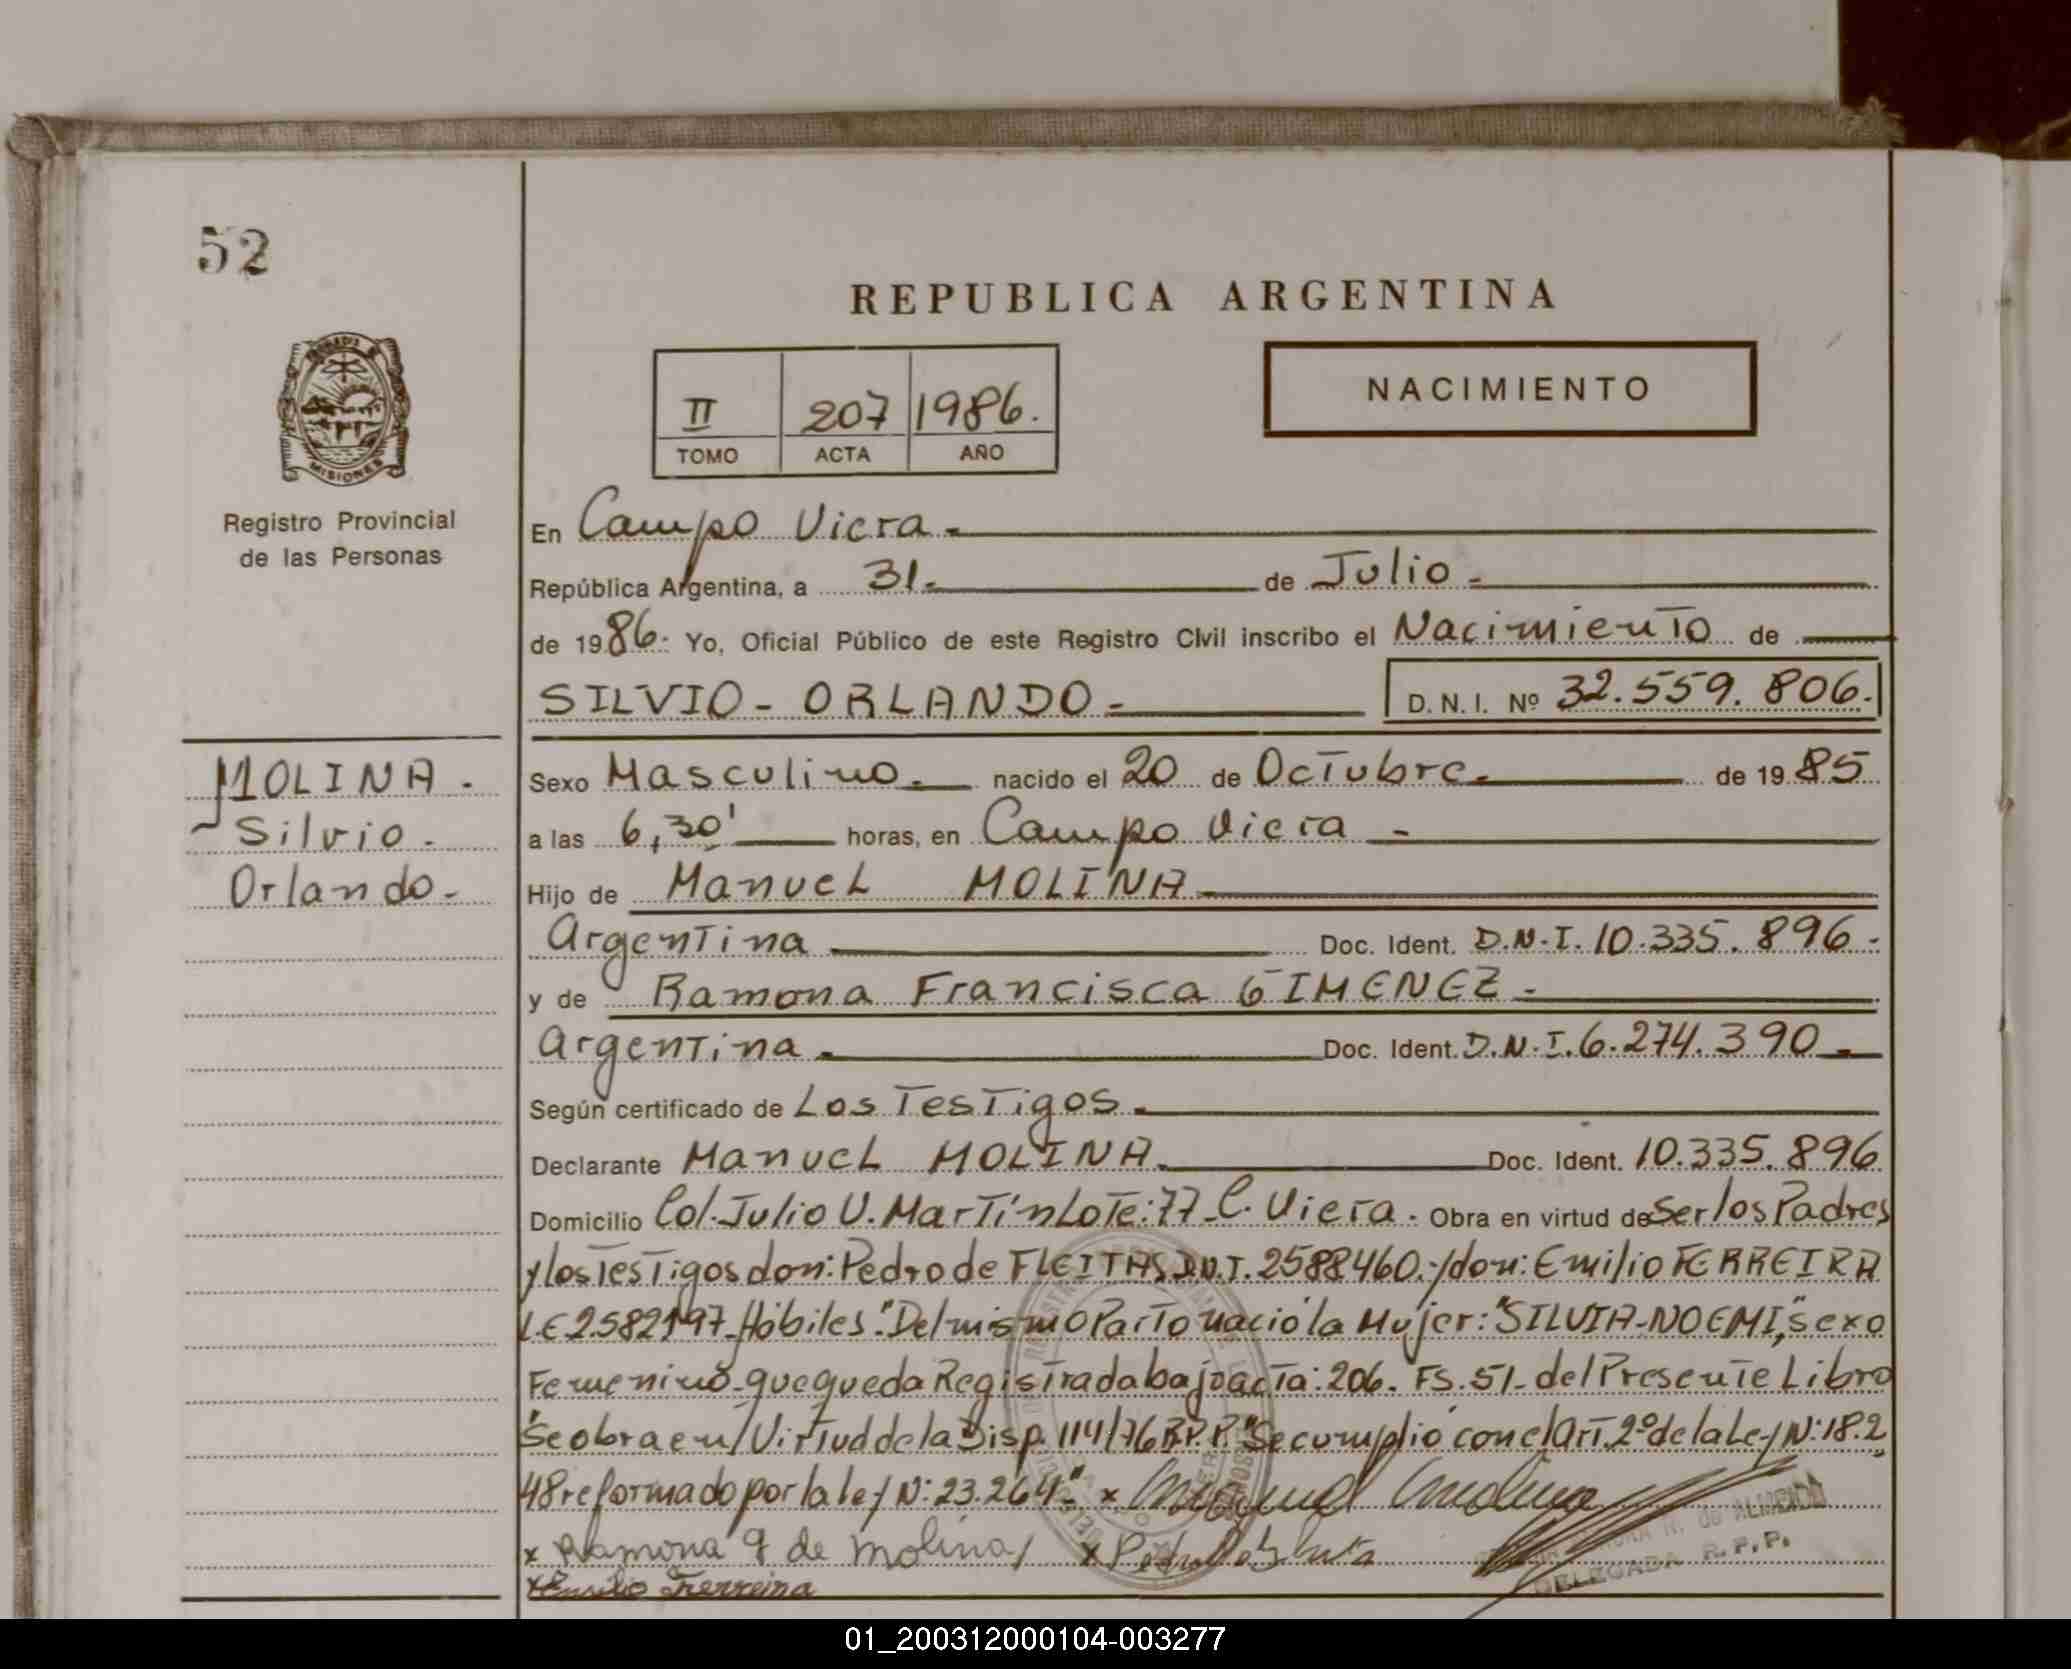 52
REPUBLICA ARGENTINA
II 207 1986.
TOMO ACTA AÑO
NACIMIENTO
MISIONES
Registro Provincial
de las Personas
MOLINA.
Silvio.
Orlando.
En Campo Viera.
República Argentina, a 31. de Julio.
de 1986. Yo, Oficial Público de este Registro Civil inscribo el Nacimiento de
SILVIO - ORLANDO - D. N. I. Nº 32.559.806.
Sexo Masculino. nacido el 20 de Octubre. de 1985
a las 6,30' horas, en Campo Viera -
Hijo de Manuel MOLINA
Argentina Doc. Ident. D.N.I. 10.335.896 -
y de Ramona Francisca GIMENEZ -
Argentina. Doc. Ident. D.N.I. 6.274.390
Según certificado de Los Testigos.
Declarante Manuel MOLINA. Doc. Ident. 10.335.896
Domicilio Col. Julio U. Martín Lote: 77 - C. Viera. Obra en virtud de Ser los Padres
y los Testigos don: Pedro de FLEITAS D.N.I. 2588460.-y don: Emilio FERREIRA
L.E 2582197 - Hábiles". "Del mismo Parto nació la Mujer: "SILVIA-NOEMI," sexo
Femenino - que queda Registrada bajo acta: 206. FS. 51 - del Presente Libro
"Se obra en Virtud de la Disp. 114/76 R.P.P." "Se cumplió con el Art. 2º de la Ley N: 18.2
48 reformado por la ley N: 23.264" x Manuel Molina
x Ramona g de Molina x Pedro de
x Emilio Ferreira
N. de ALMEIDA
DELEGADA R.P.P.
01_200312000104-003277